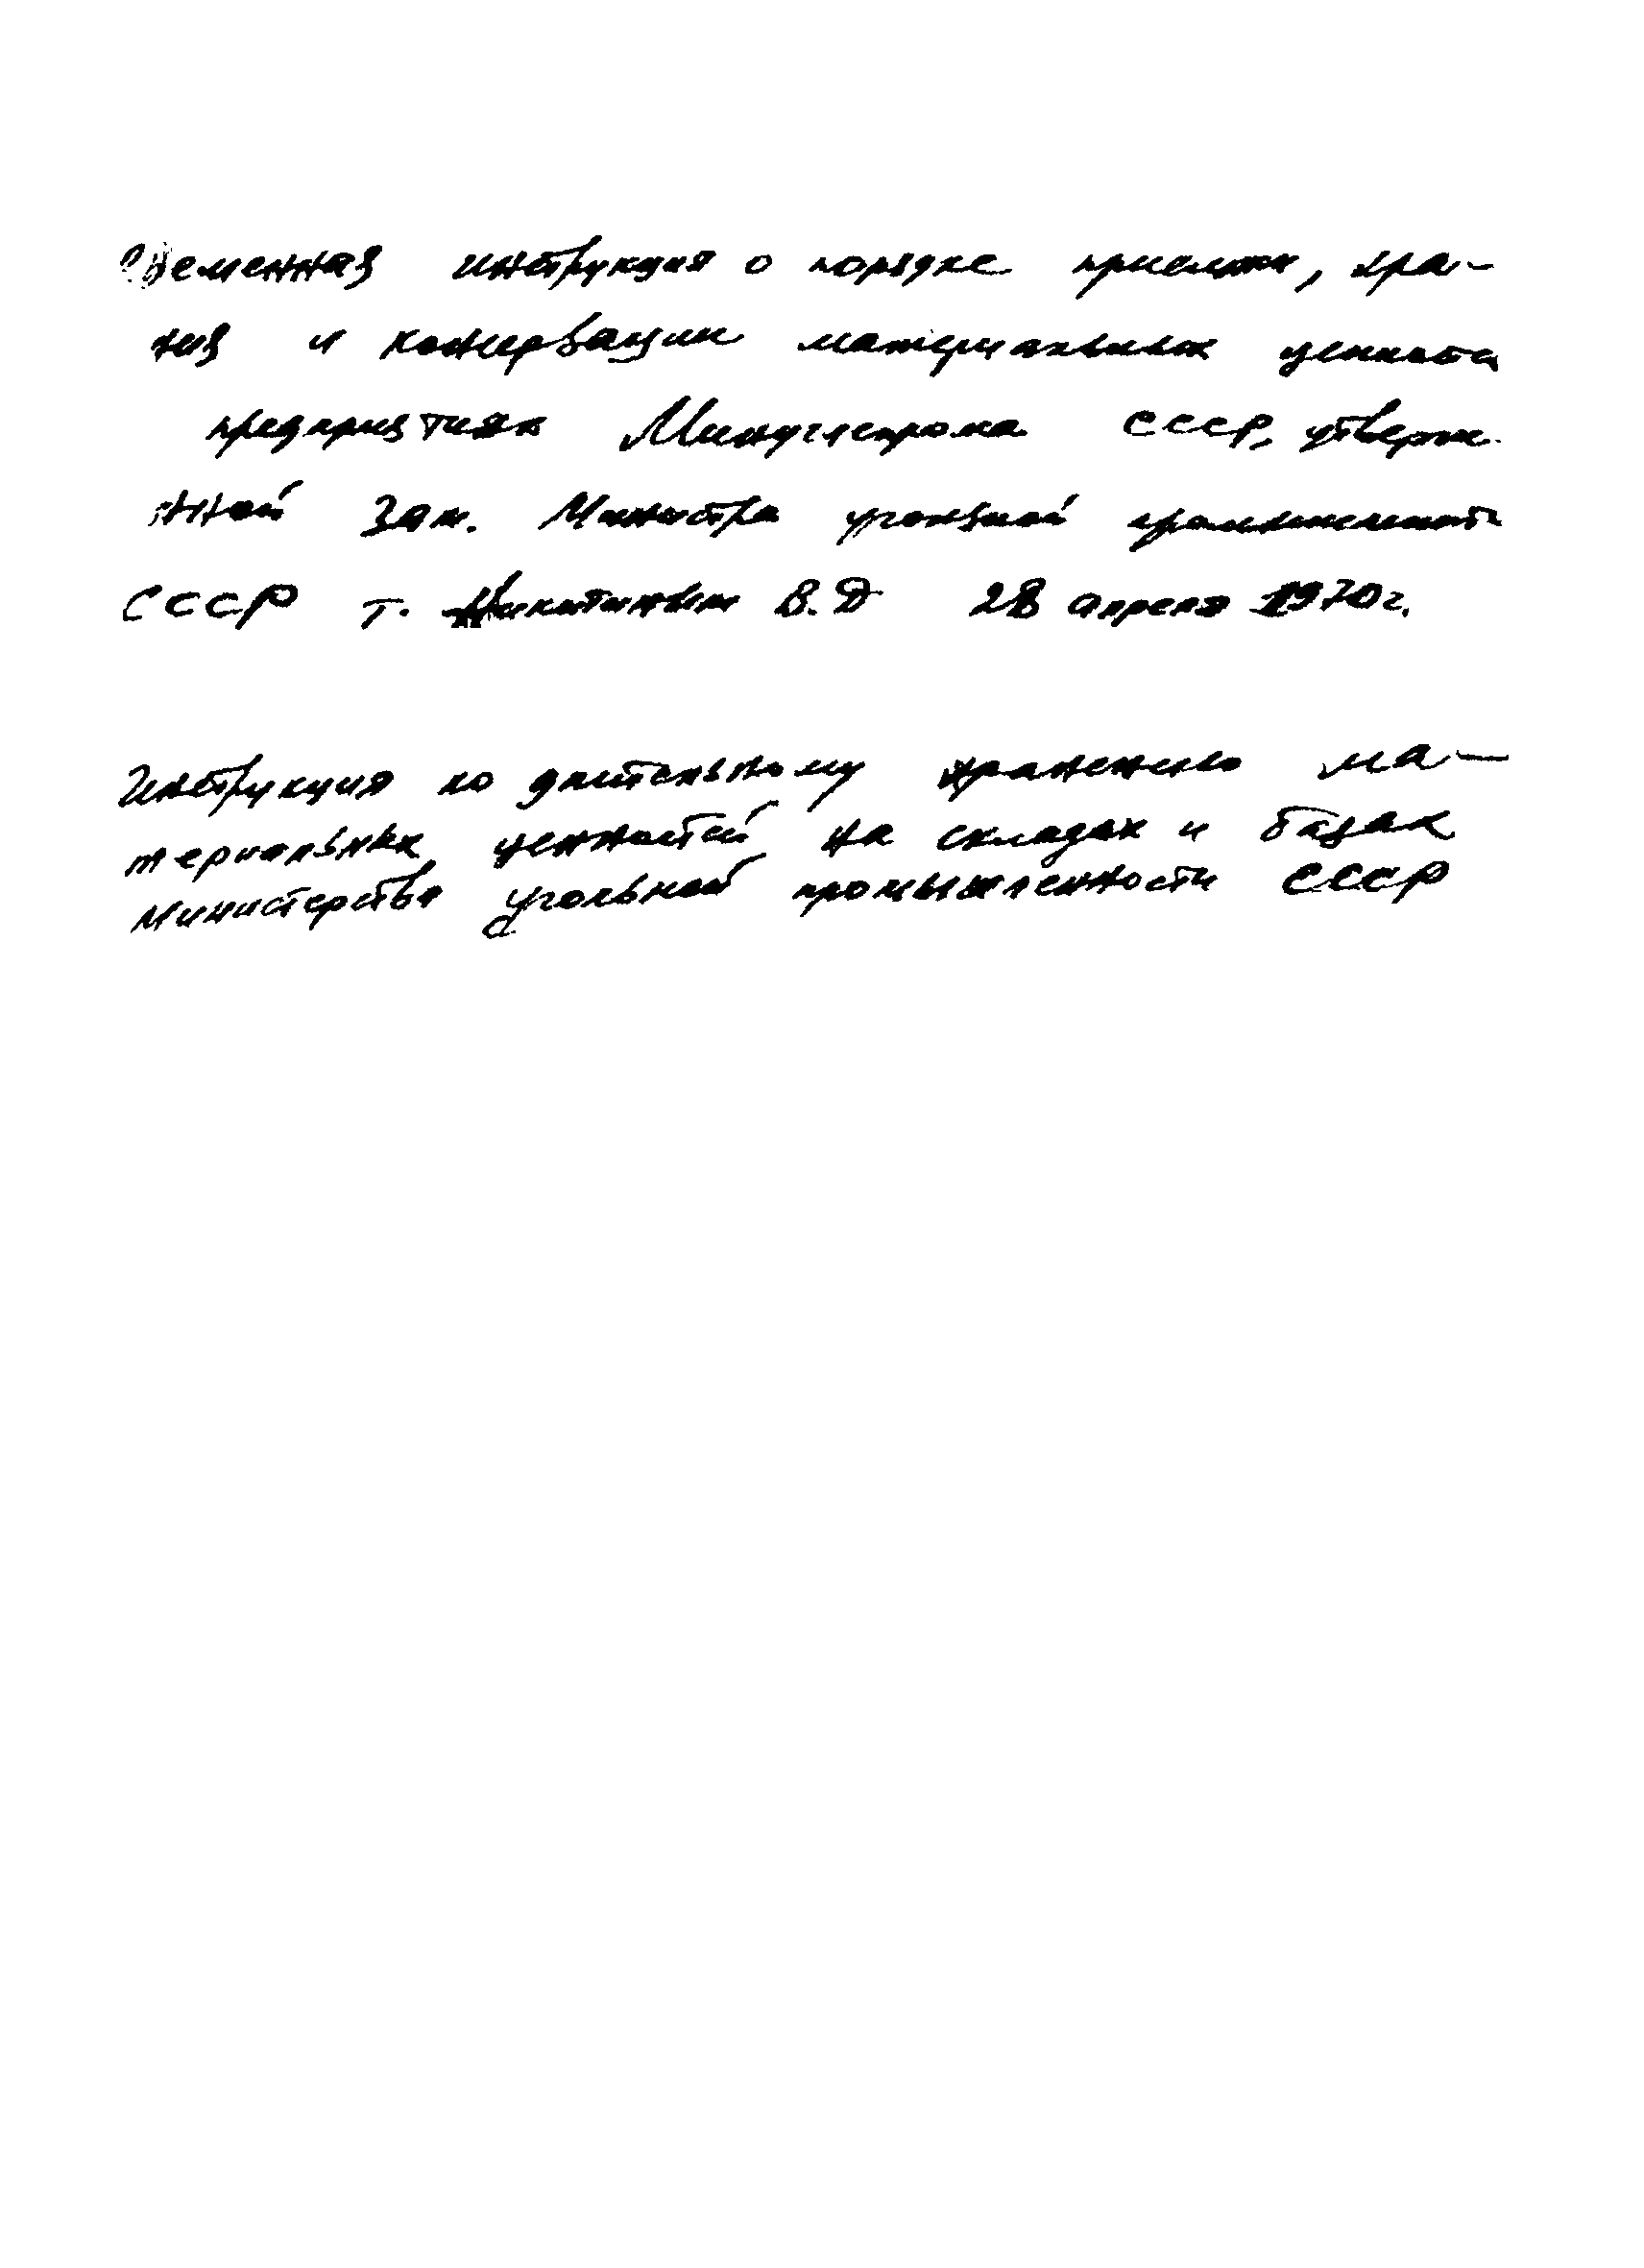 Временная инструкция о порядке приемки, хра-
ния и консервации материальных ценносте
предприятиях Минуглепрома СССР, утверж
нной Зам. Министра угольной промышленности
СССР т. Никитиным В.Д 28 апреля 1970г.
Инструкция по длительному хранению ма-
териальных ценностей на складах и базах
Министерства угольной промышленности СССР